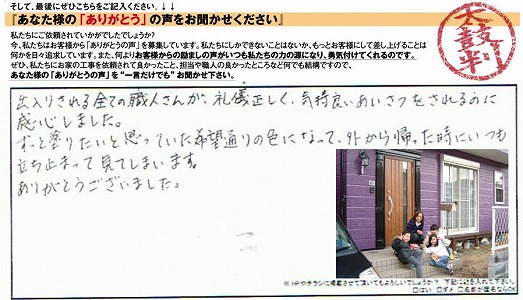 そして、最後にぜひこちらをご記入ください。↓↓
『あなた様の「ありがとう」の声をお聞かせください』
私たちにご依頼されていかがでしたでしょうか?
今、私たちはお客様から「ありがのうの声」を募集しています。私たちにしかできないことはないか、もっとお客様にして差し上げることは
何かを日々追求しています。また、何よりお客様からの励ましの声がいつも私たちの力の源になり、勇気付けてくれるのです。
ぜひ、私たちにお家の工事を依頼されて良かったこと、担当や職人の良かったところなど何でも結構ですので、
あなた様の「ありがとうの声」を"一言だけでも"お聞かせ下さい。
太鼓判
出入りされる全ての職人さんが、礼儀正しく、気持良いあいさつをされるのに
感心しました。
ずっと塗りたいと思っていた希望通りの色になって、外から帰った時にいつも
立ち止まって見てしまいます。
ありがとうございました。
※HPやチラシに掲載させて頂いてもよろしいでしょうか? 下記に☑を入れて下さい。
□はい □ダメ □名前が匿名ならOK